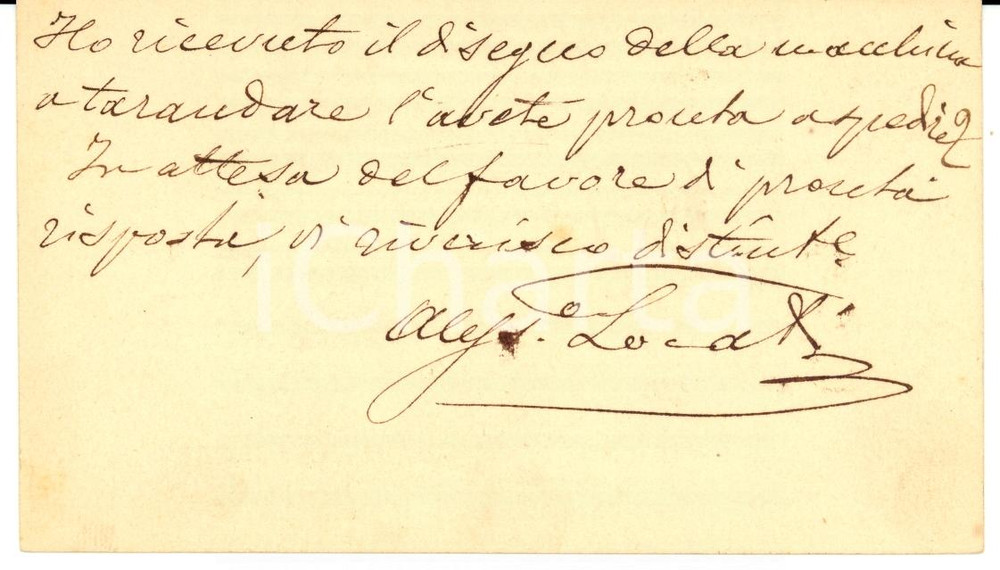 Ho ricevuto il disegno della macchina
a tarandare l'avete pronta a spedire?
In attesa del favore di pronta
risposta, vi riverisco distinte
Less.o Locati
iCharta